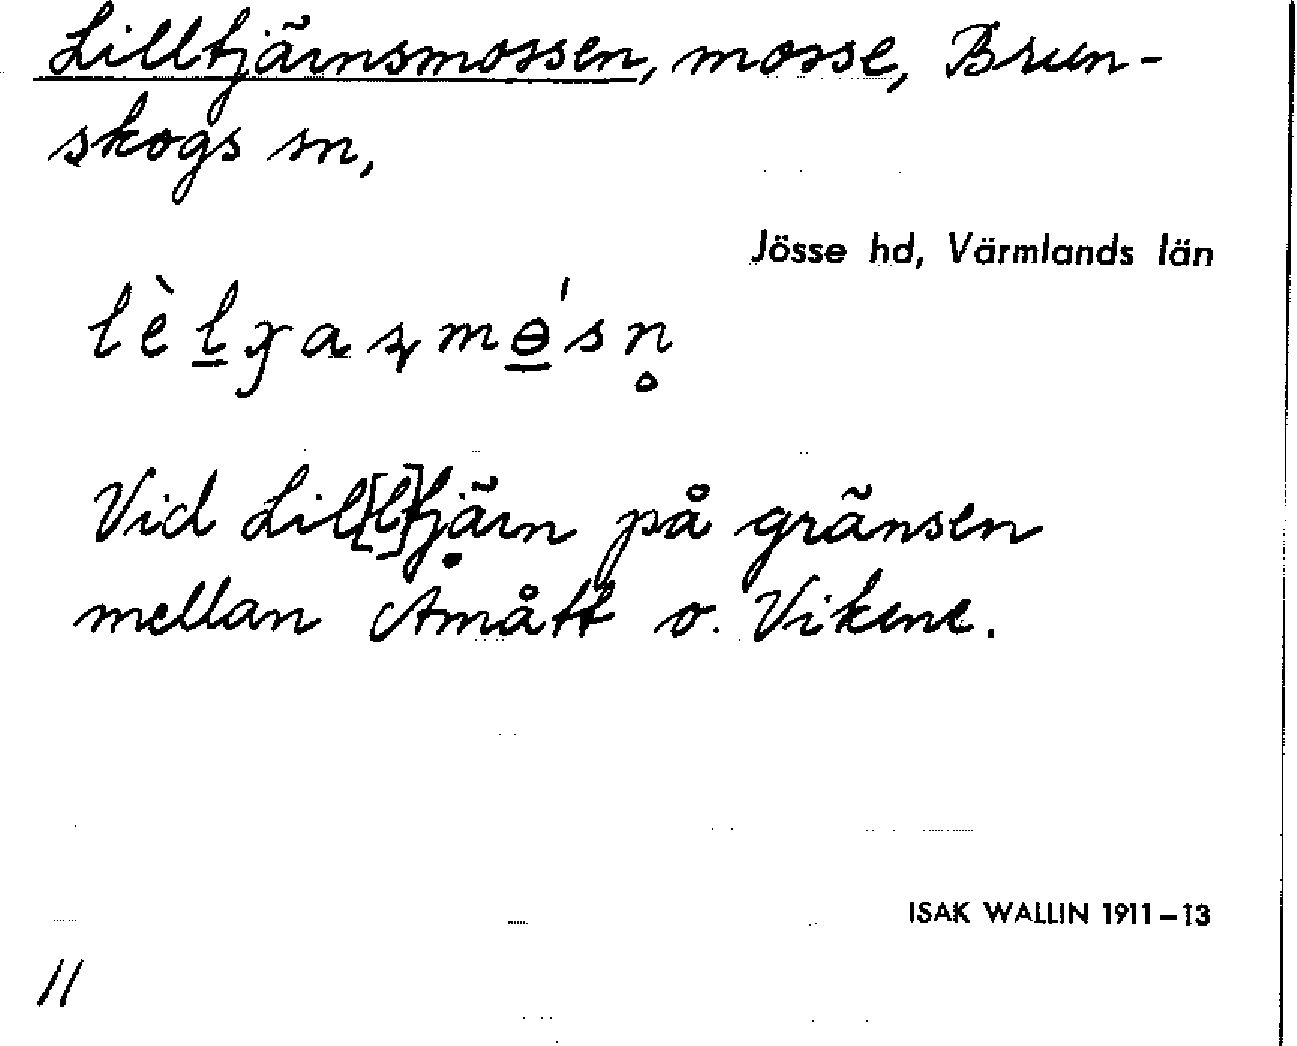 Lilltjärnsmossen, mosse, Brun-
skogs sn,
Jösse hd, Värmlands län
Vid Lil[l]tjärn på gränsen
mellan Åmått o. Vikene.
ISAK WALLIN 1911–13
11